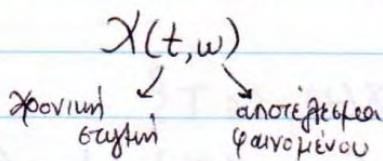 X(t,ω)
χρονική στιγμή
αποτέλεσμα φαινομένου